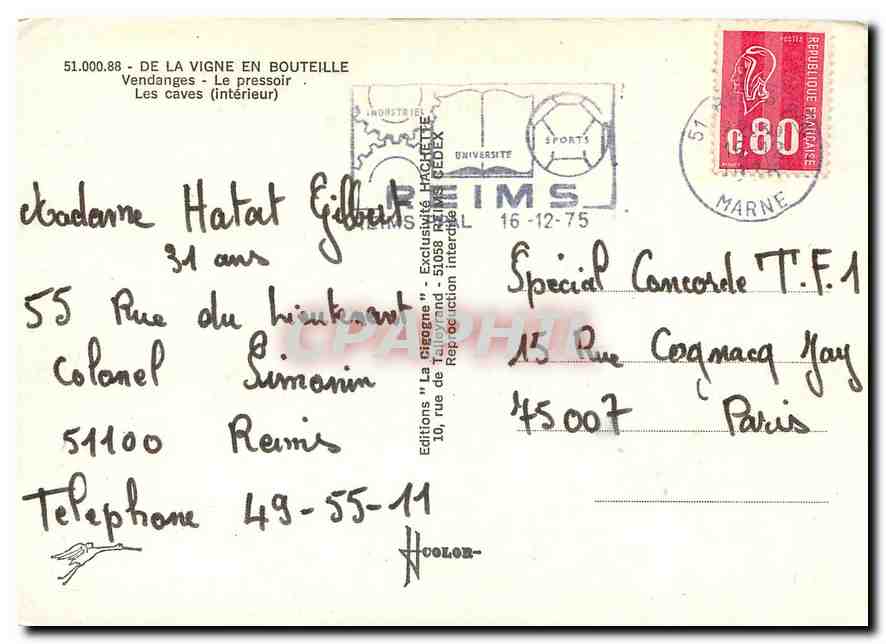 51.000.88 - DE LA VIGNE EN BOUTEILLE
Vendanges - Le pressoir
Les caves (intérieur)
INDUSTRIEL
UNIVERSITÉ
SPORTS
REIMS
REIMS 16-12-75
51
MARNE
POSTES
REPUBLIQUE FRANÇAISE
0,80
Madame Hatat Gilbert
31 ans
55 Rue du Lieutenant
Colonel Simonin
51100 Reims
Telephone 49-55-11
Editions "La Cigogne" - Exclusivité HACHETTE
10, rue de Talleyrand - 51058 REIMS CEDEX
Reproduction interdite
Spécial Concorde T.F.1
15 Rue Cognacq Jay
75007 Paris
COLOR
CPAPHIL